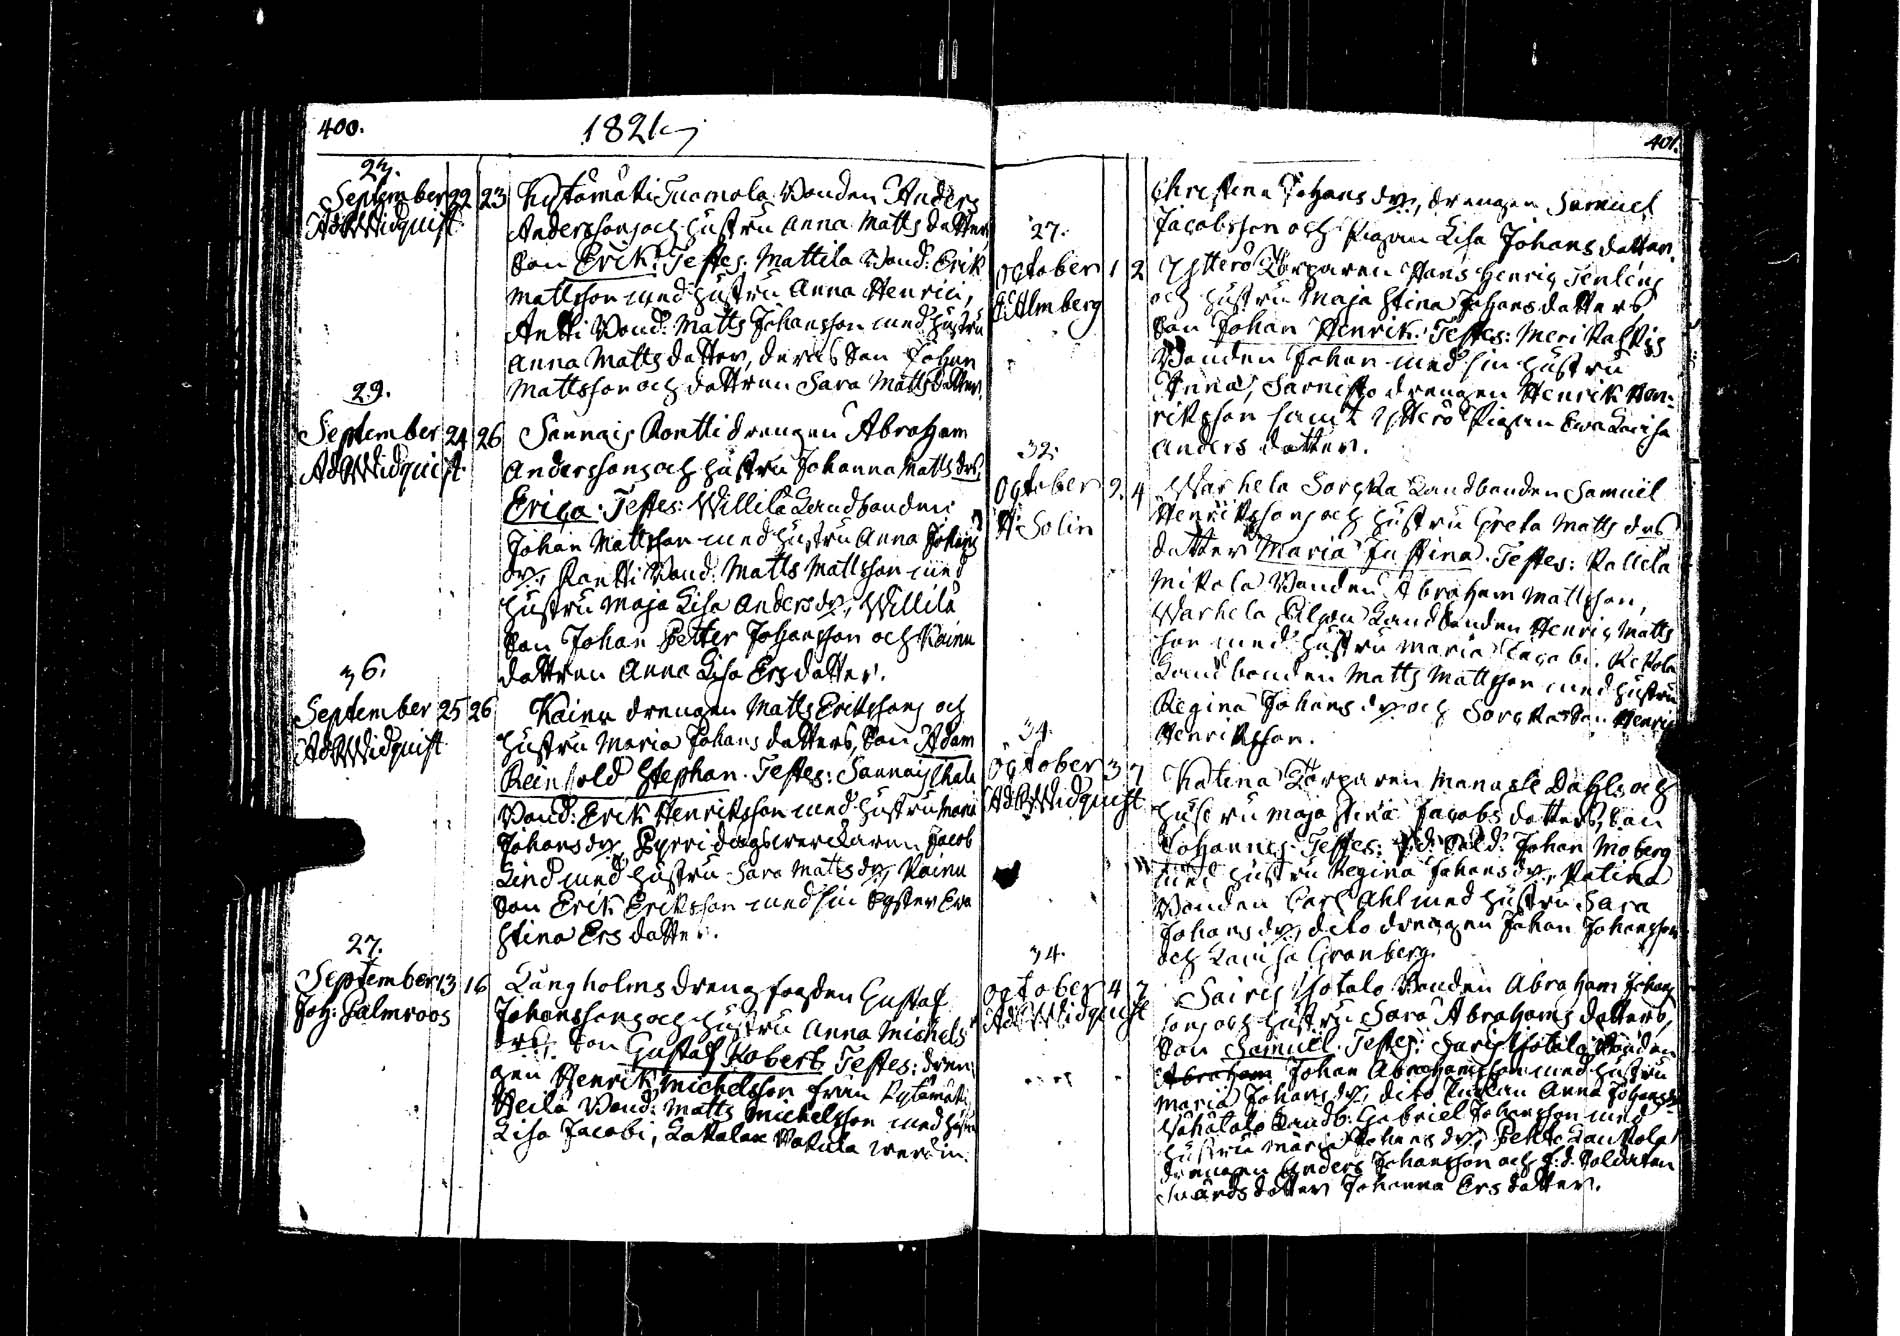 400.
1821
23.
September 22 23 Kytömäki Tuomola Bonden Anders
Ad. Widquist Anderssons och hustru Anna Matts dotters
Son Erik. Testes: Mattila Bond: Erik
Mattsson med hustru Anna Henrici,
Antti Bond: Matts Johansson med hustru
Anna Matts dotter, deras Son Johan
Mattsson och dottren Sara Mattsdotter.
29.
September 24 26 Sannais Rontti drengen Abraham
Ad. Widquist Anderssons och hustru Johanna Matts drs
Erica. Testes: Willilä Landbonden
Johan Mattsson med hustru Anna Johans
dr, Rontti Bond: Matts Mattsson med
hustru Maja Lisa Anders dr, Willilä
Son Johan Petter Johansson och Kainu
dottren Anna Lisa Ersdotter.
36.
September 25 26 Kainu drengen Matts Erikssons och
Ad. Widquist hustru Maria Johans dotters, Son Adam
Reinhold Stephan. Testes: Sannais
Bond: Erik Henriksson med hustru Maria
Johans dr, Pyrri dagsverckaren Jacob
Lind med hustru Sara Matts dr, Kainu
Son Erik Eriksson med sin Syster Eva
Stina Ersdotter.
27.
September 13 16 Långholms dreng fogden Gustaf
Joh: Palmroos Johanssons och hustru Anna Michels
drs, Son Gustaf Robert. Testes: dren
gen Henrik Michelsson från Kytömäki
Heilä Bond: Matts Michelsson med hustru
Lisa Jacobi,
401.
Christina Johans dr, drengen Samuel
Jacobsson och Pigan Lisa Johans dotter.
27.
October 1 2 Ytterö Torparen Hans Henric
Almberg och hustru Maja Stina Johansdotters
Son Johan Henrik. Testes:
Bonden Johan med sin hustru
Anna, drengen Henrik Hen-
riksson samt Ytterö Pigan Eva Lovisa
Anders dotter.
32.
October 2. 4 Warhela Sorcka Landbonden Samuel
A: Solin Henrikssons och hustru Greta Matts drs
dotter Maria Justina. Testes:
Mikola Bonden Abraham Mattsson,
Warhela Landbonden Henric Matts
son med hustru Maria Jacobi,
Landbonden Matts Mattsson med hustru
Regina Johans dr och Sorcka Son Henric
Henriksson.
34.
October 3 7 Katina Torparen Manasse Dahls och
Ad. Widquist hustru Maja Stina Jacobs dotters, Son
Johannes. Testes: f.d. Sold: Johan Moberg
med hustru Regina Johans dr, Katina
Bonden Carl Ahl med hustru Sara
Johans dr, dito drengen Johan Johansson
och Lovisa Granberg.
34.
October 4 7 Sairis Isotalo Bonden Abraham Johans
Ad. Widquist sons och hustru Sara Abrahams dotters,
Son Samuel. Testes: Sairis Isotalo Bonden
Abraham Johan Abrahamsson med hustru
Maria Johans dr, dito Enckan Anna Johans dr
Vähätalo Landb: Gabriel Johansson med
hustru Maria Johans dr,
drengen Anders Johansson och f.d. Soldaten
Svärds dotter Johanna Ersdotter.